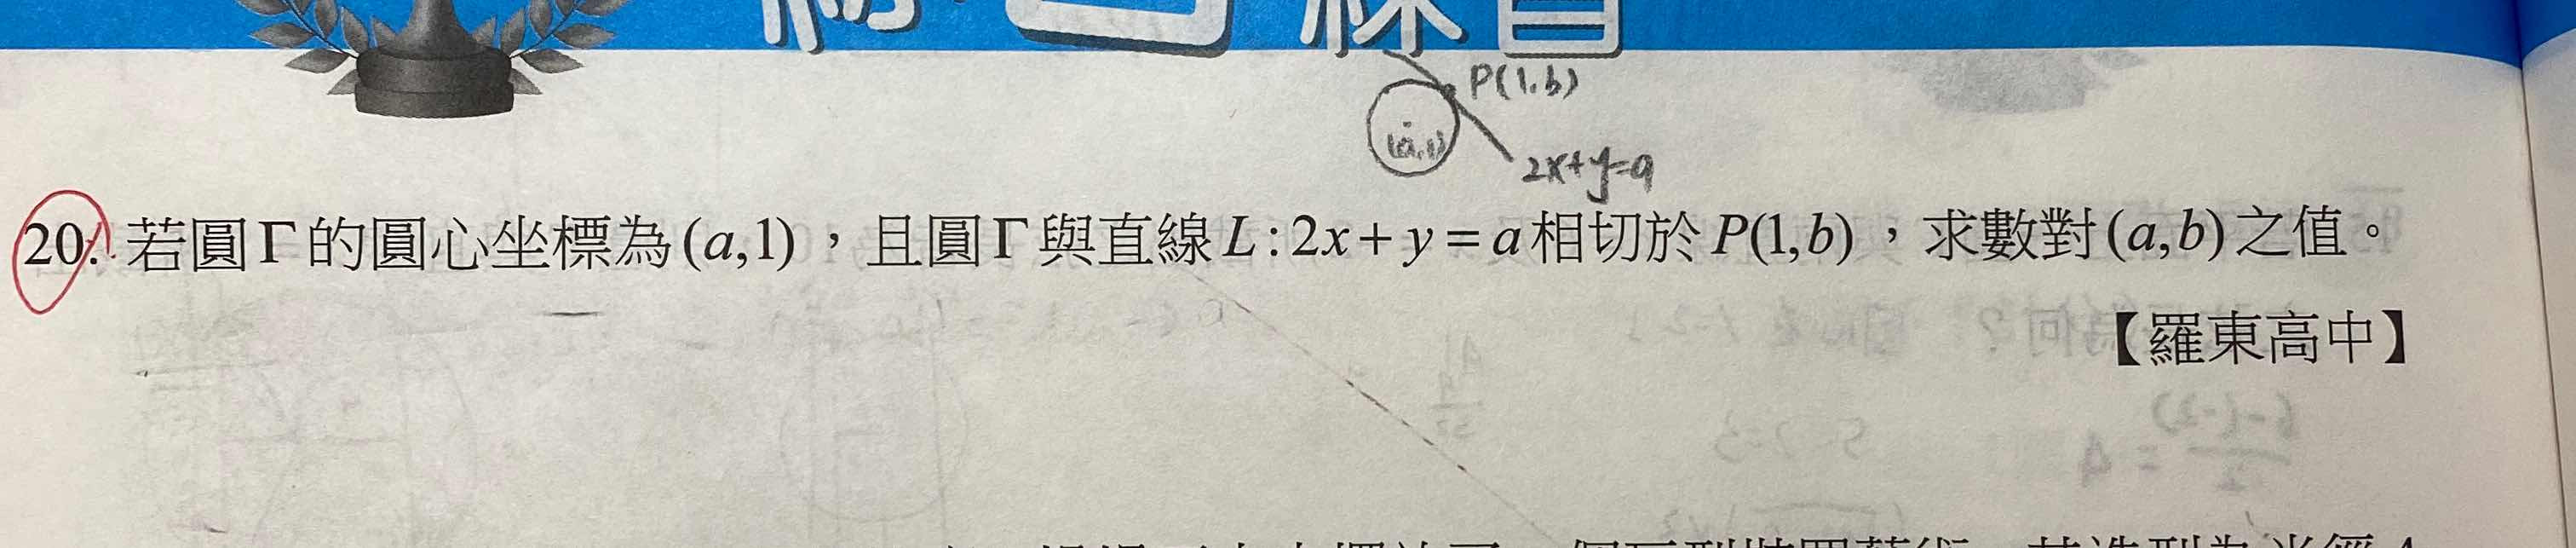 P(1,b)
(a,1)
2x+y=a
20. 若圓Γ的圓心坐標為(a,1)，且圓Γ與直線L:2x+y=a相切於P(1,b)，求數對(a,b)之值。
【羅東高中】